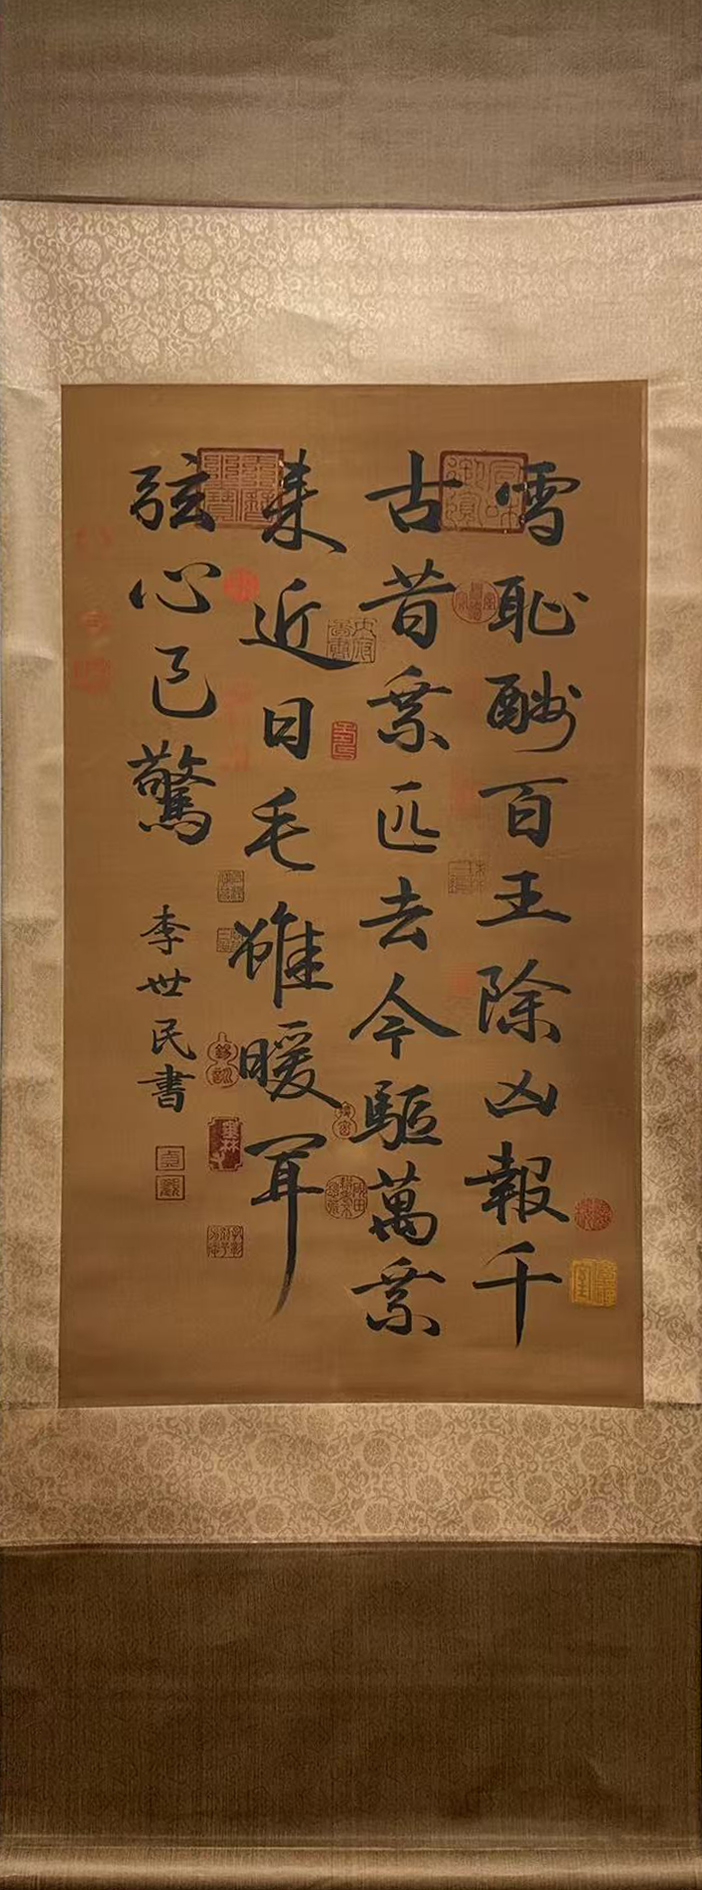 雪恥酬百王除凶報千
古昔乘匹去今驅萬乘
來近日毛雖暖聞
弦心已驚
李世民書
貞觀